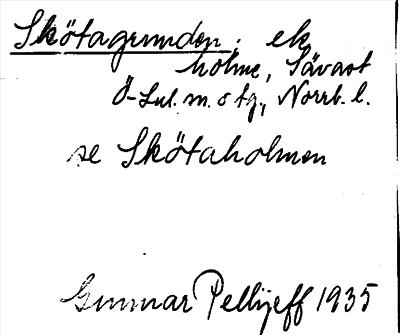 Skötagrunden, ek
holme, Sävast
Ö-Lul. m. o tg., Norrb. l.
se Skötaholmen
Gunnar Pellijeff 1935